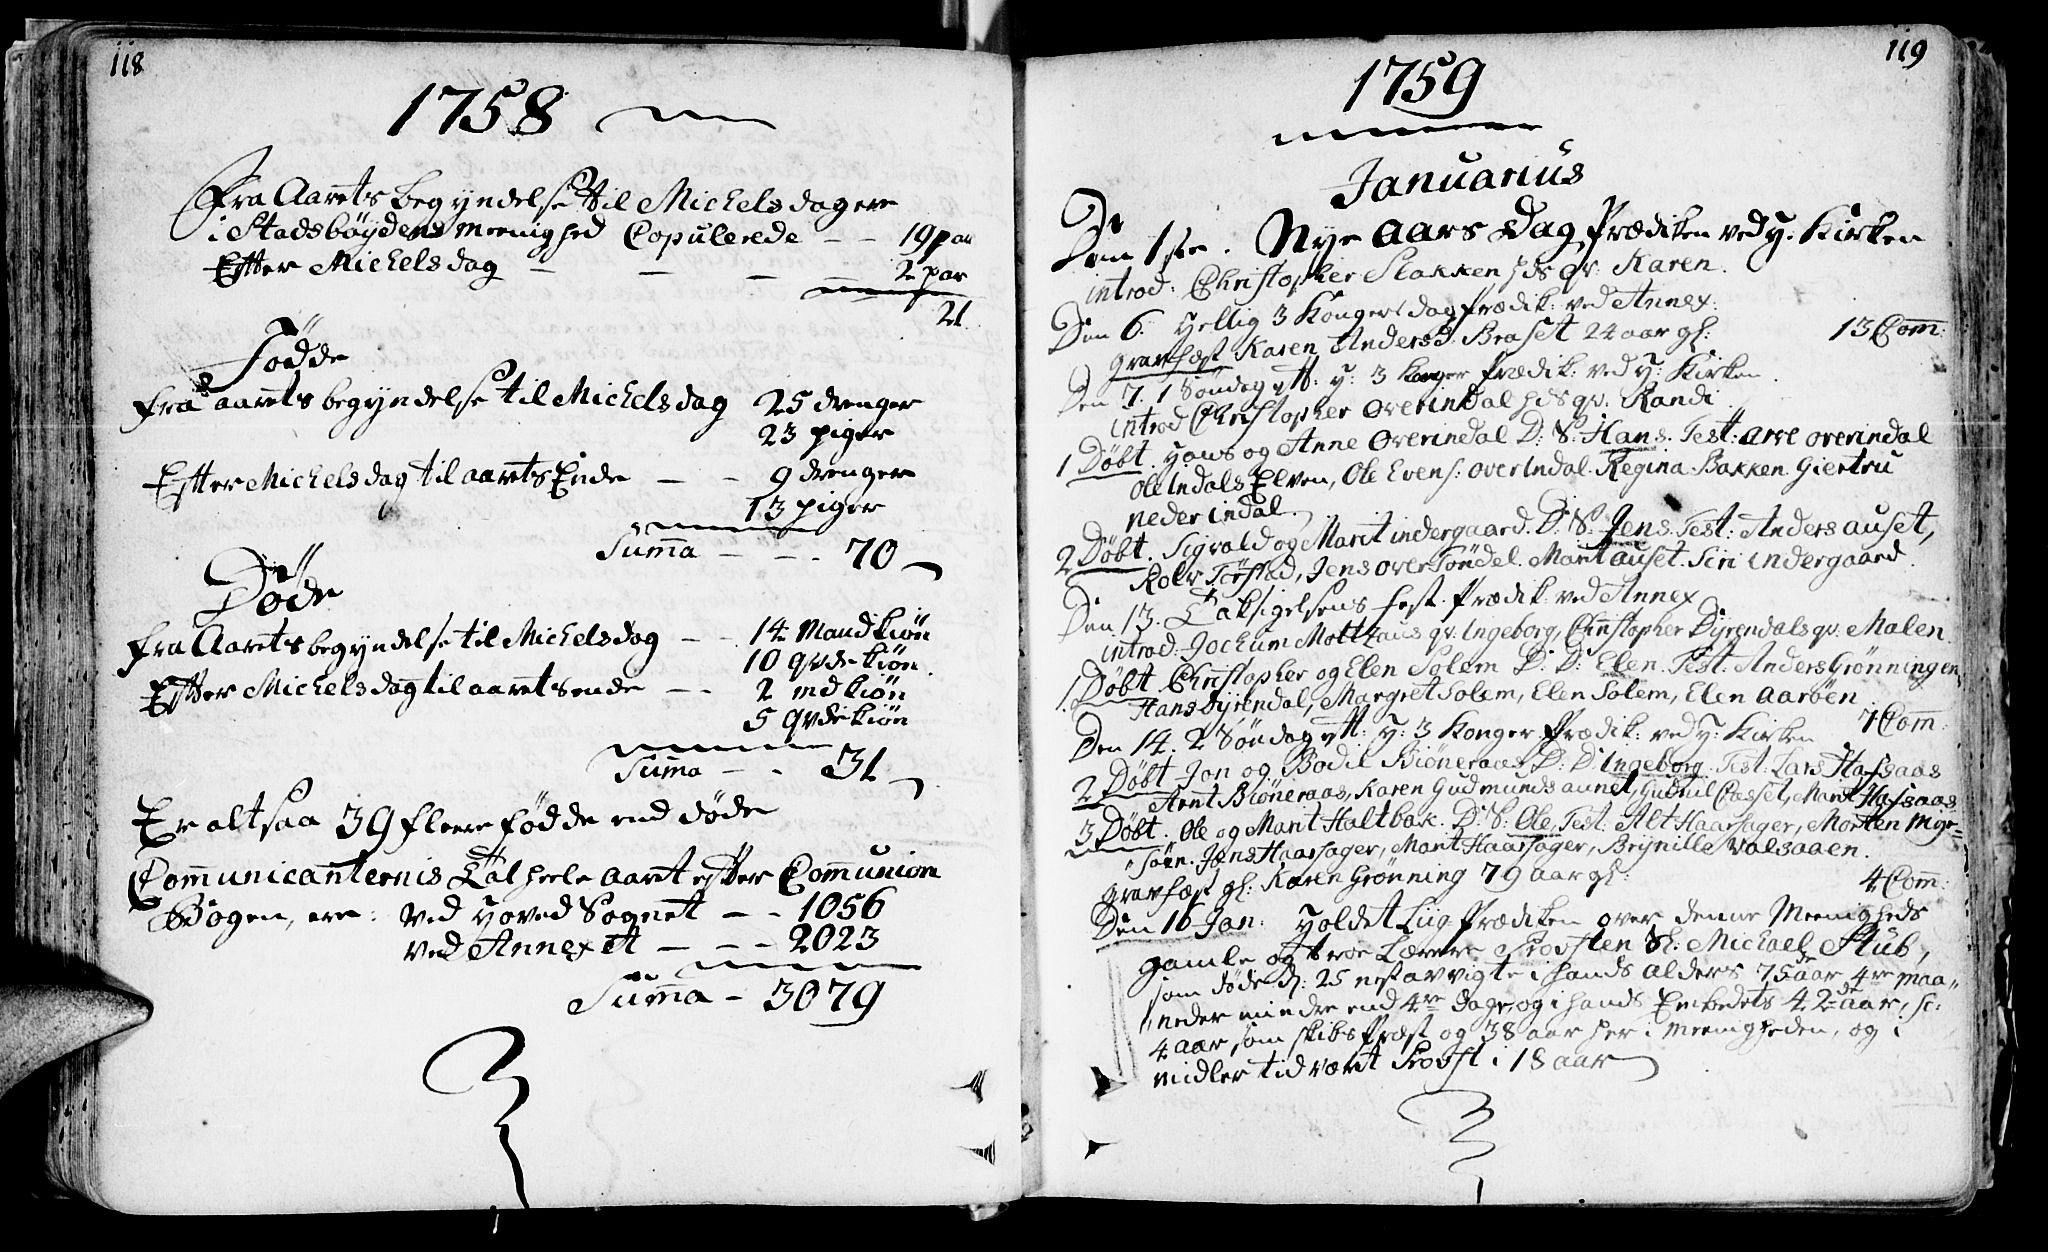 118
1758
Fra Aarets begyndelse til Michelsdagen
i Stadsböydens meenighed Copulerede — — 19 par
Efter Michelsdag — — — 2 par
21.
Födde
fra aarets begyndelse til Michelsdag 25 drenger
23 piger
Efter Michelsdag til aarets Ende — — 9 drenger
13 piger
Summa — — — 70
Döde
fra Aarets begyndelse til Michelsdag — — 14 Mandkiön
10 qvdekiön
Efter Michelsdag til aarets ende — — 2 mdkiön
5 qvdekiön
Summa — — 31
Er altsaa 39 fleere födde end döde
Communicanternis Tal heele aaret efter Communion
Bogen, ere: ved Hoved Sognet — — 1056
ved Annexet — — — 2023
Summa — 3079
119
1759
Januarius
Den 1ste. Nye Aars Dag Prædiken ved H. Kirken
introd: Christopher Slakken hds qv: Karen.
Den 6. Hellig 3 Kongers dag Prædik: ved Annex: 13 Com:
gravfæst Karen Andersd. Braset 24 aar gl:
Den 7. 1 Söndag eft: H: 3 Konger Prædik: ved H: Kirken.
introd Christopher Overindal hds qv. Randi
1 Döbt. Hans og Anne Overindal D: S. Hans. Test: Arve overindal
Ole Indals Elven, Ole Evens: overIndal. Regina Bakken Giertru
nederindal.
2 Döbt. Sigvald og Marit indergaard. D: S. Jens. Test: Anders auset,
Rolv Törstad, Jens oversöndel. Marit auset. Siri indergaard.
Den 13. Taksigelsens Fest. Prædik: ved Annex
introd. Jochum Motthaus qv. Ingeborg, Christopher Dyrendals qv. Malen.
1. Döbt Christopher og Elen Solem D: D: Elen. Test: Anders Grönningen,
Hans Dyrendal, Margret Solem, Elen Solem, Elen Aaröen.
Den 14. 2 Söndag eft: H: 3 Konger Prædik: ved H: Kirken 7 Com:
2 Döbt Jon og Bodil Biöneraas D: D: Ingeborg. Test: Lars Hafsaas
Arnt Biöneraas, Karen Gudmundsaunet, Gudril Casset, Marit Hafsaas
3 Döbt. Ole og Marit Haltbak. D: S: Ole, Test: Alt Haarsager, Morten Myr=
"söen. Jens Haarsager, Marit Haarsager, Brynille Valsaaen.
gravfæst gl: Karen Grönning 79 aar gl: 4 Com:
Den 16 Jan: Holdet Liig Prædiken over denne Meenigheds
gamle og troe Lærere Provsten Sl. Michael Stub,
som döde d: 25 nestavvigte i hands alders 75de aar 4re maa"
"neder mindre end 4re dage, og i hands Embedets 42de aar, sc:
4 aar som skibs Præst og 38 aar her i meenigheden, og i
midlertid været Provst i 18 aar